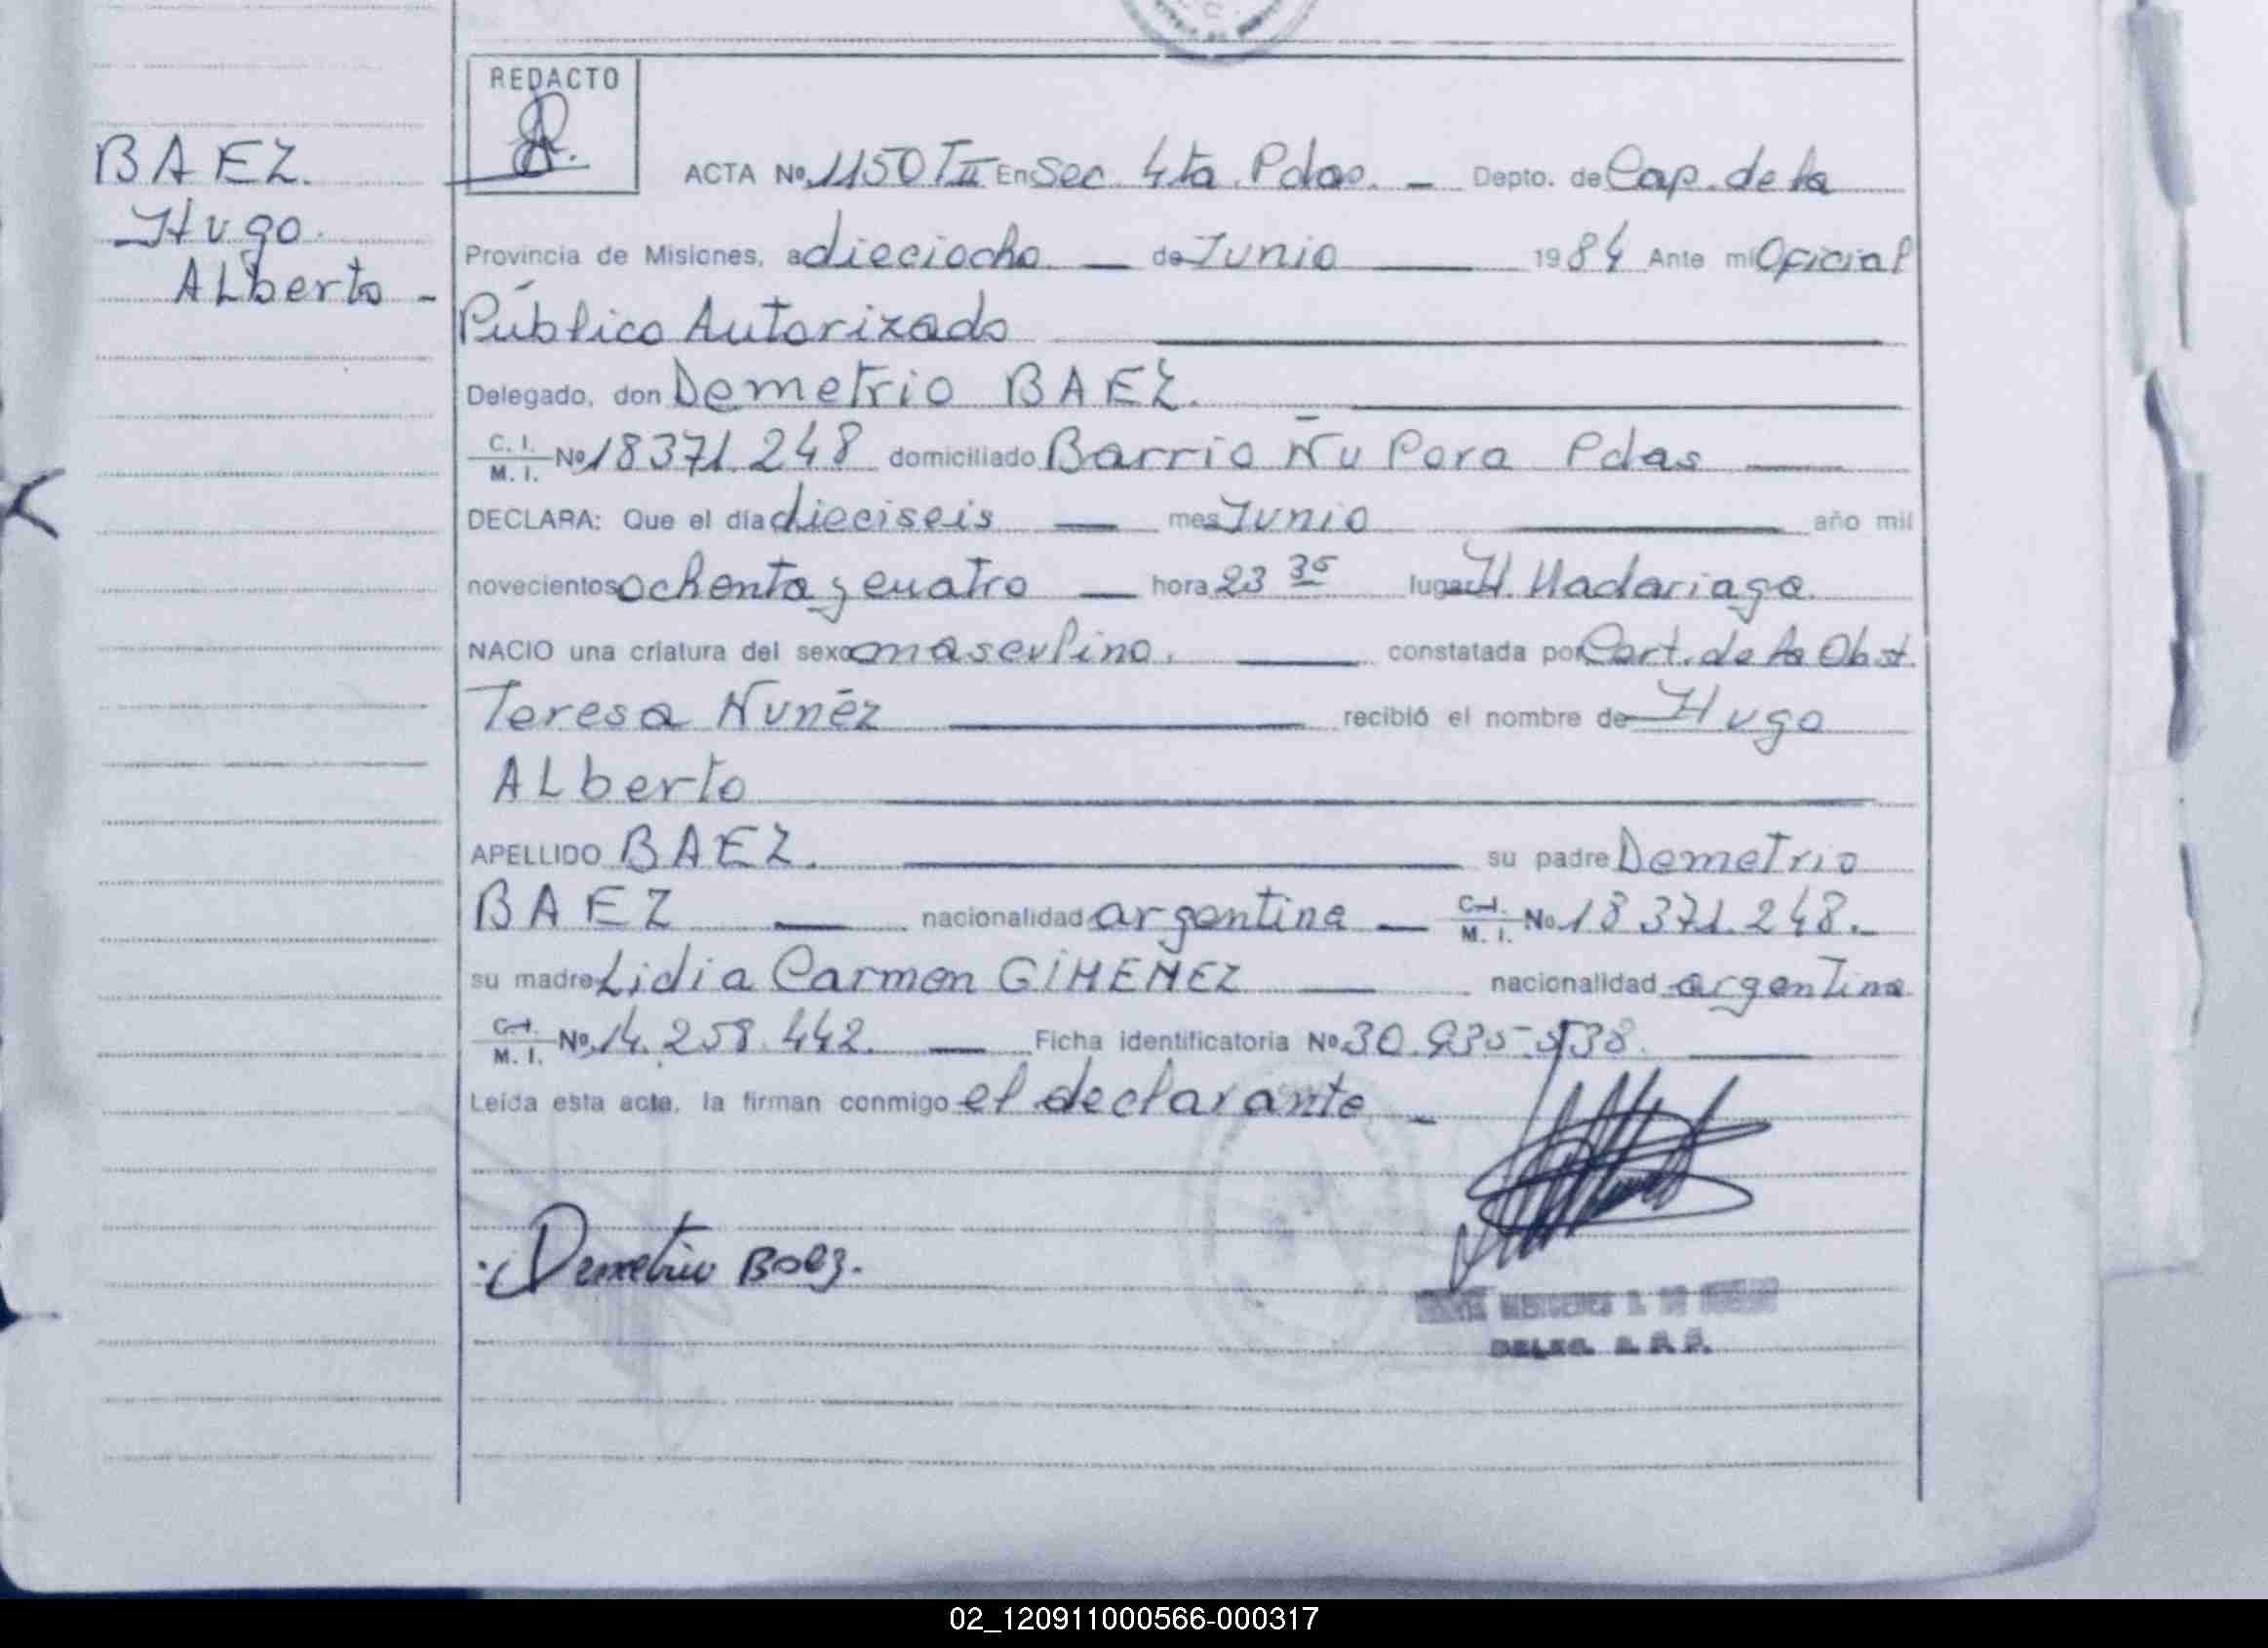 REDACTO
BAEZ.
Hugo
ALberto -
ACTA Nº 1150 TII En Sec. 4ta. Pdas. - Depto. de Cap. de la
Provincia de Misiones, a dieciocho de Junio 1984 Ante mi Oficial
Público Autorizado
Delegado, don Demetrio BAEZ.
C. I. / M. I. Nº 18371.248 domiciliado Barrio Ñu Pora Pdas
DECLARA: Que el día dieciseis mes Junio año mil
novecientos ochenta y cuatro hora 23 35 lugar H. Madariaga.
NACIO una criatura del sexo masculino. constatada por Cert. de la Obst.
Teresa Nuñez recibió el nombre de Hugo
ALberto
APELLIDO BAEZ. su padre Demetrio
BAEZ nacionalidad argentina C.I. / M. I. Nº 18 371.248.
su madre Lidia Carmen GIMENEZ nacionalidad argentina
C.I. / M. I. Nº 14.258.442. Ficha identificatoria Nº 30.
Leída esta acta, la firman conmigo el declarante
Demetrio Baez.
DELEG. S. R. P.
02_120911000566-000317